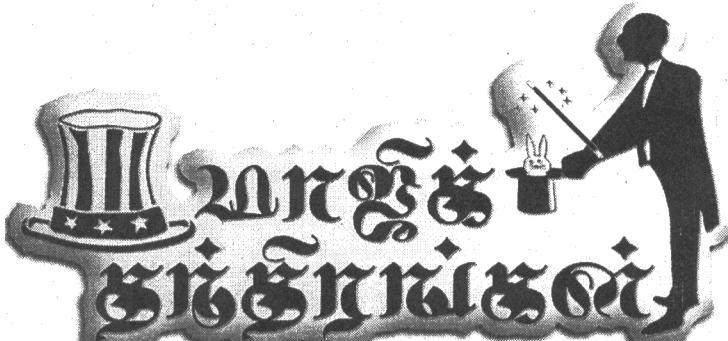 மாஜிக்
தந்திரங்கள்